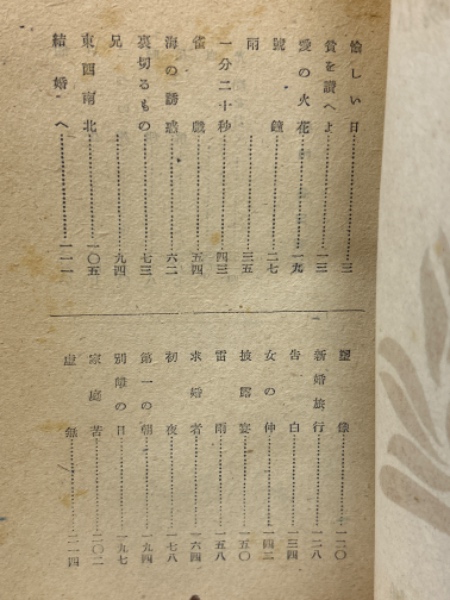 愉しい日…………三
貧を讃へよ…………一三
愛の火花…………一九
號鐘…………二七
雨…………三五
一分二十秒…………四三
雀戯…………五四
海の誘惑…………六二
裏切るもの…………七三
兄…………九四
東西南北…………一〇五
結婚へ…………一一一
塑像…………一二〇
新婚旅行…………一二八
告白…………一三四
女の仲…………一四二
披露宴…………一五〇
雷雨…………一五八
求婚者…………一六四
初夜…………一七八
第一の朝…………一九四
別離の日…………一九七
家庭苦…………二〇二
虚無…………二一四